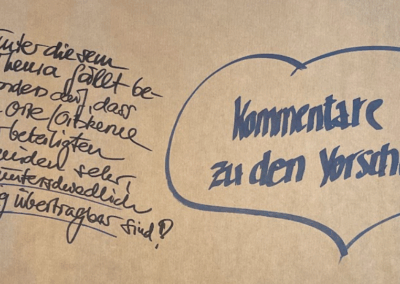 unter diesem
Thema fällt be-
sonders auf, dass
Orte/Ortskerne
beteiligten
sehr
unterschiedlich
übertragbar sind!?
Kommentare
zu den Vorsch